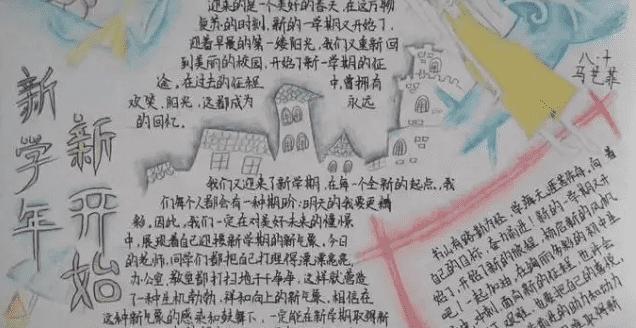 新学年
新开始
迎来的是一个美好的春天,在这万物
复苏的时刻,新的一学期又开始了,
迎着早晨的第一缕阳光,我们又重新回
到美丽的校园,开始了新一学期的征
途,在过去的征程中,曾拥有
欢笑、阳光,这都成为永远
的回忆。
八、十
马艺菲
我们又迎来了新学期,在每一个全新的起点,我
们每个人都会有一种期盼:明天的我要更精
彩,因此,我们一定在对美好未来的憧憬
中,展现着自己迎接新学期的新气象,今日
的老师,同学们都把自己打理得漂漂亮亮
办公室,教室都打扫地干干净净,这样就营造
了一种生机勃勃,祥和向上的新气象,相信在
这种新气象的感染和鼓舞下,一定能在新学期取得新
自己的目标,奋力前进!新的一学期又开
始了,开始了新的旅程,扬起新的风帆
吧!一起加油,在绚丽多彩的